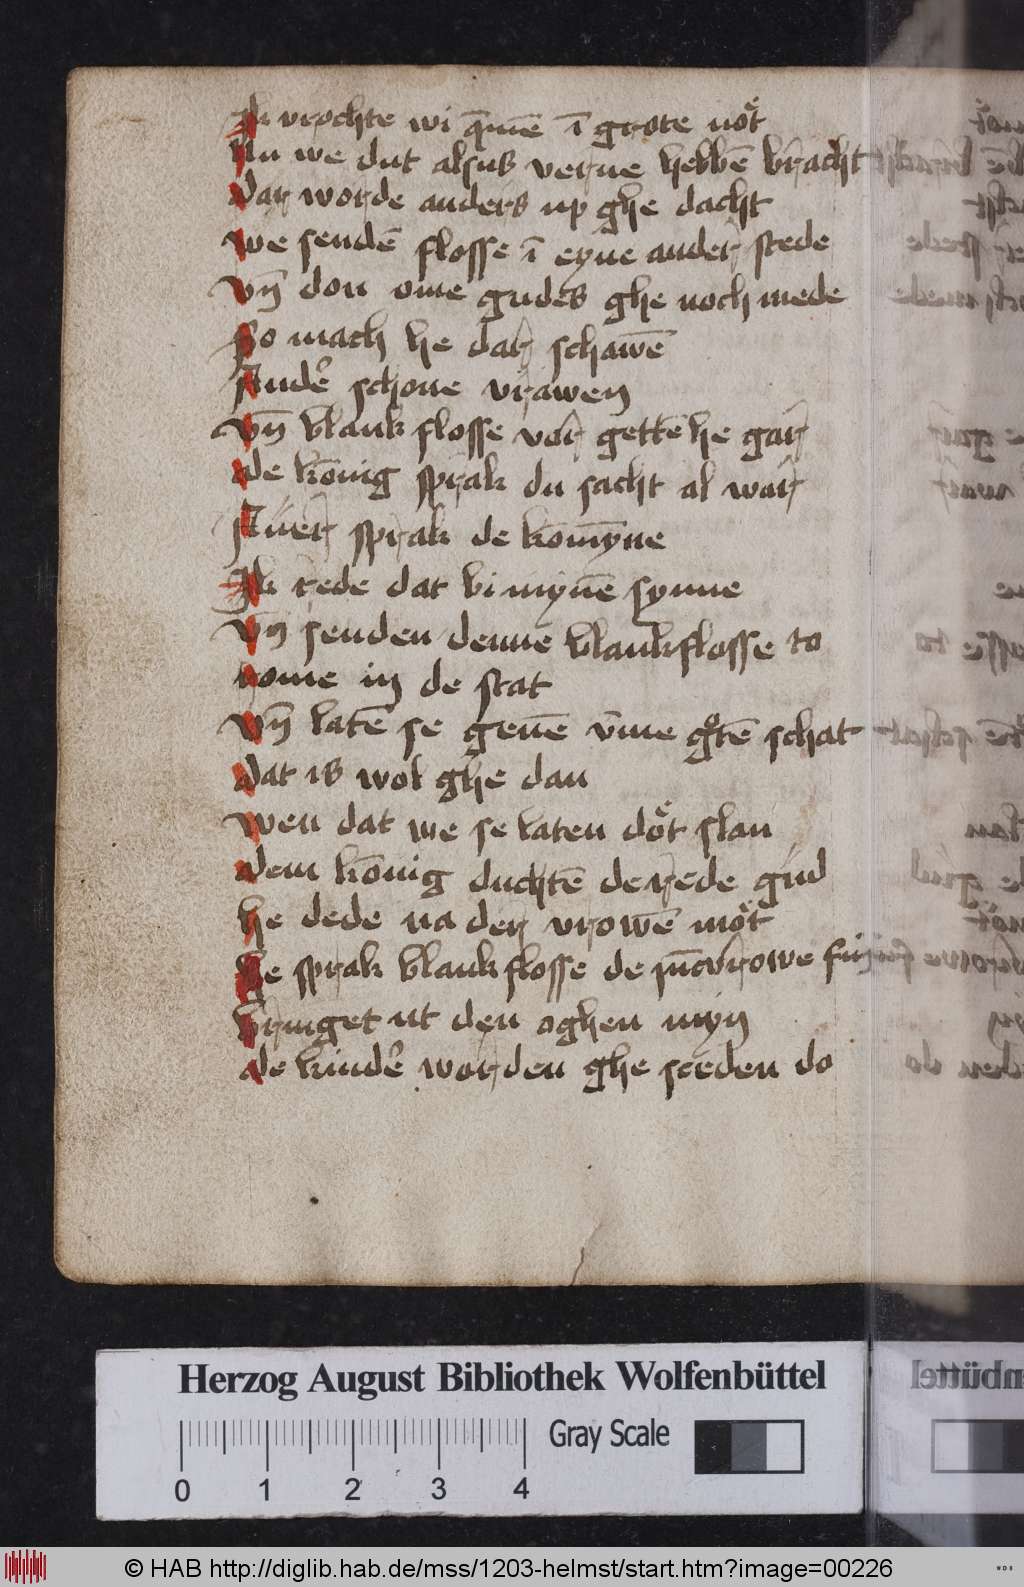 Ik vrochte wi q̄mē ī grote nöt
Nu we dut alsus verne hebbē bracht
dar worde anders up ghe dacht
we sendē flosse ī eyne ander stede
vn̄ don ome gudes ghe noch mede
So mach he dar schawē
Ander schone vrawen
vn̄ blank flosse vor gettē he gar
de kōnig sprak du sacht al war
Auer sprak de kōnīyne
Ik rede dat bi mynē synne
vn̄ senden denne blankflosse to
rome in de stat
vn̄ latē se geuē v̄me gͦtē schat
dat is wol ghe dan
wen dat we se laten döt slan
dem kōnig duchtē de rede gud
he dede na der vrowē möt
he sprak blank flosse de juͤcvrowe fin
bringet ut den oghen myn
de kinder worden ghe sceden do
Herzog August Bibliothek Wolfenbüttel
Gray Scale
0 1 2 3 4
© HAB http://diglib.hab.de/mss/1203-helmst/start.htm?image=00226